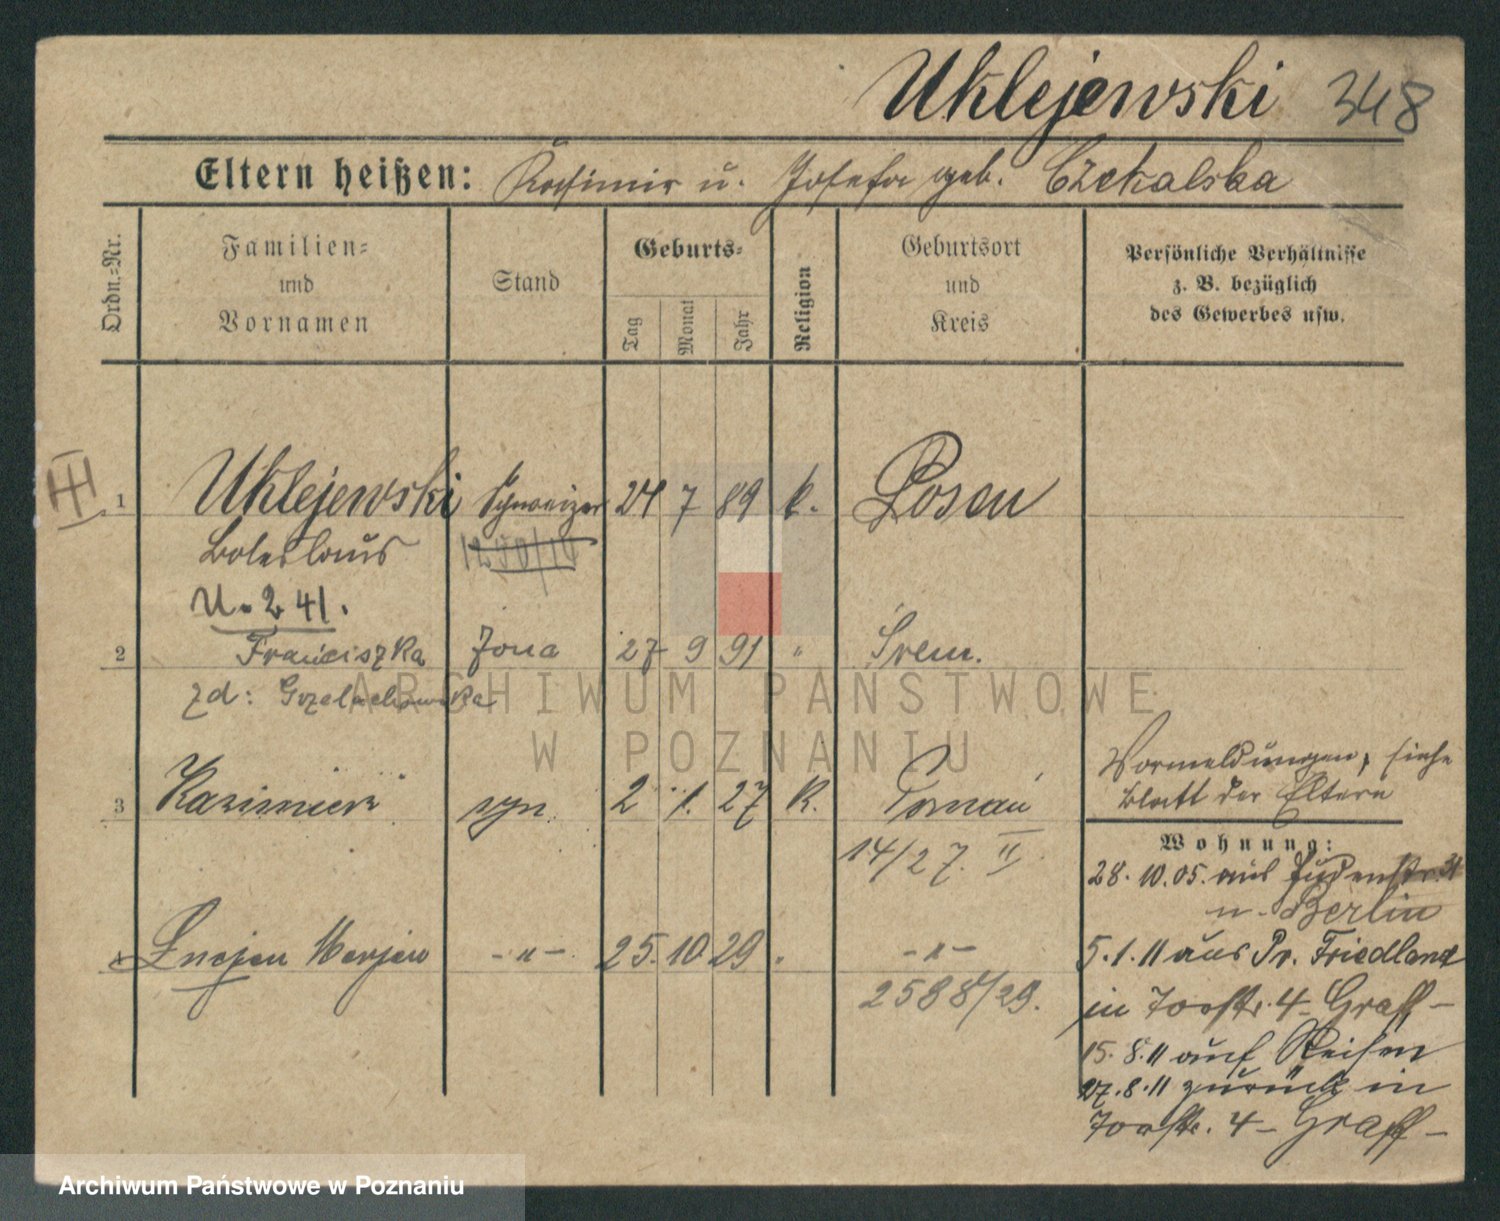 Uklejewski 348
Eltern heißen: Kasimir u. Josefa geb. Czekalska
Ordn.=Nr.
Familien=
und
Vornamen
Stand
Geburts=
Tag
Monat
Jahr
Religion
Geburtsort
und
Kreis
Persönliche Verhältnisse
z. B. bezüglich
des Gewerbes usw.
III
1 Uklejewski 24 7 89 k. Posen
Boleslaus
U. 241.
2 Franciszka żona 27 9 91 " Śrem.
zd: Grzelachowska
3 Kazimierz syn 2 1. 27 k. Poznań
14/27. II
Lucjan Marjan -"- 25. 10 29 " -"-
2588/29.
Vormeldungen, siehe
Blatt der Eltern
Wohnung:
28. 10. 05. aus Judenstr. 31
n. Berlin
5. 1. 11 aus Pr. Friedland
in Torstr. 4 Graff -
15. 8. 11 auf Reisen
27. 8. 11 zurück in
Torstr. 4 - Graff -
ARCHIWUM PAŃSTWOWE
W POZNANIU
Archiwum Państwowe w Poznaniu